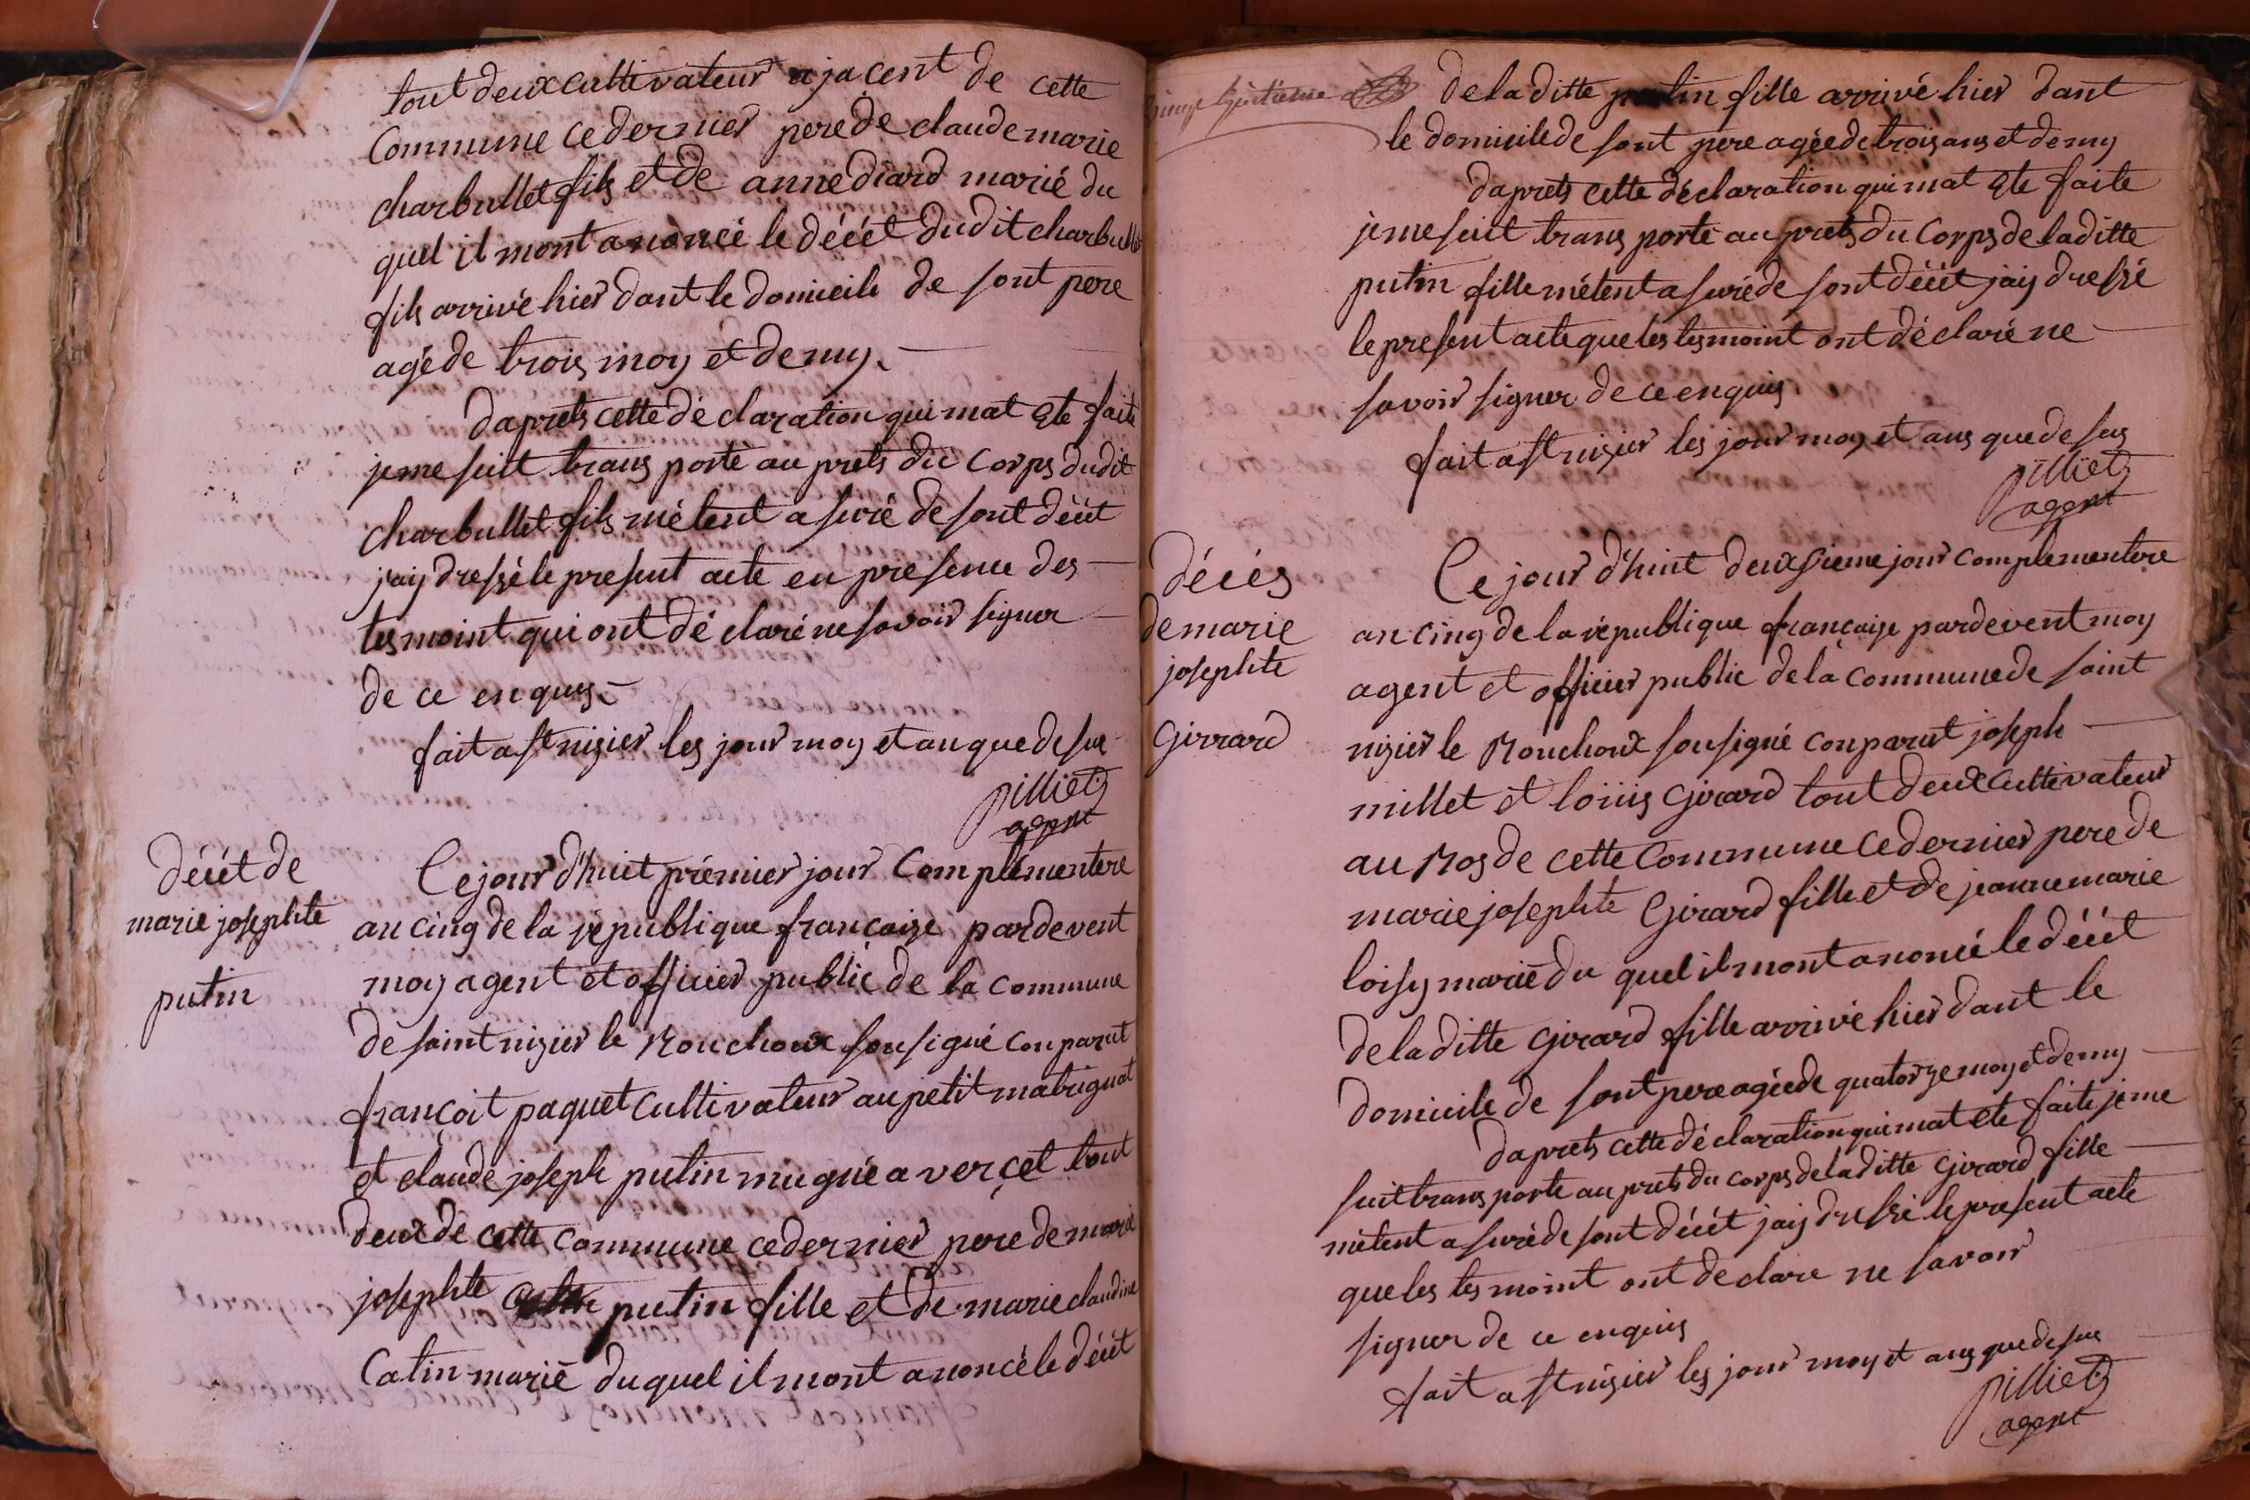 tout deux cultivateur a jacent de cette
Commune ce dernier pere de claude marie
charbullet fils et de anne diard marié du
quel il mont anoncé le décét dudit charbullet
fils arrivé hier dant le domicile de sont pere
agé de trois moy et demy.
daprets cette déclaration qui mat ete faite
je me suit trans porté au prets du Corps dudit
charbullet fils métent a suré de sont décét
jay dressé le present acte en presence des
tesmoint qui ont dé claré ne savoir signer
de ce enquis
fait a st nizier les jour moy et an que de sus
pilliet
agent
décét de
marie josephte
putin
Ce jour d'huit prémier jour Complémentere
an cinq de la république françaize pardevent
moy agent et officier public de la commune
de saint nizier le Bouchoux sousigné conparut
françoit paquet cultivateur au petit matrignat
et claude joseph putin mugnié a verçet tout
deux de cette commune ce dernier pere de marie
josephte putin fille et de marie claudine
Catin marié duquel il mont anoncé le décét
vingt huitieme
de la ditte putin fille arrivé hier dant
le domicile de sont pere agée de trois ans et demy
daprets cette déclaration qui mat ete faite
je me suit trans porté au prets du Corps de la ditte
putin fille métent a suré de sont décét jay dressé
le present acte que les tesmoint ont déclaré ne
savoir signer de ce enquis
fait a st nizier les jour moy et ans que de sus
pilliet
agent
décés
de marie
josephte
Girrard
Ce jour d'huit deuxsieme jour complementere
an cinq de la république françaize pardevent moy
agent et officier public de la commune de saint
nizier le Bouchoux sousigné conparut joseph
millet et loiüis Girard tout deux cultivateur
au Bos de cette Commune ce dernier pere de
marie josephte Girard fille et de jeanne marie
loisy marié du quel il mont anoncé le décét
de la ditte Girard fille arrivé hier dant le
domicile de sont pere agée de quatorze moy et demy
daprets cette déclaration qui mat ete faite je me
suit trans porte au prets du corps de la ditte Girard fille
métent a suré de sont décét jay dressé le present acte
que les tesmoint ont declare ne savoir
signer de ce enquis
fait a st nizier les jour moy et ans que de sus
pilliet
agent